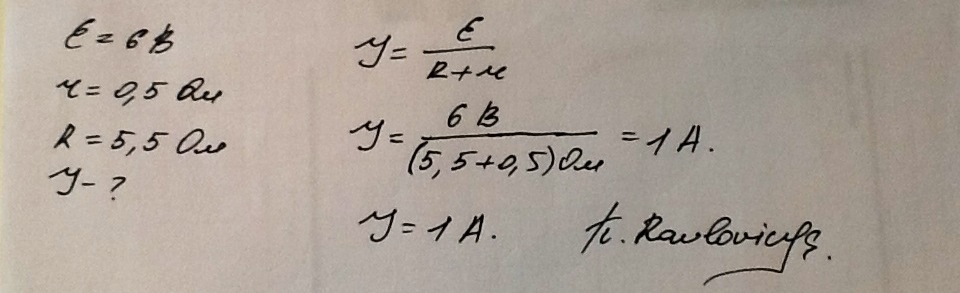 ε = 6 В
r = 0,5 Ом
R = 5,5 Ом
I - ?
I = ε / (R + r)
I = 6 В / (5,5 + 0,5) Ом = 1 А.
I = 1 А.